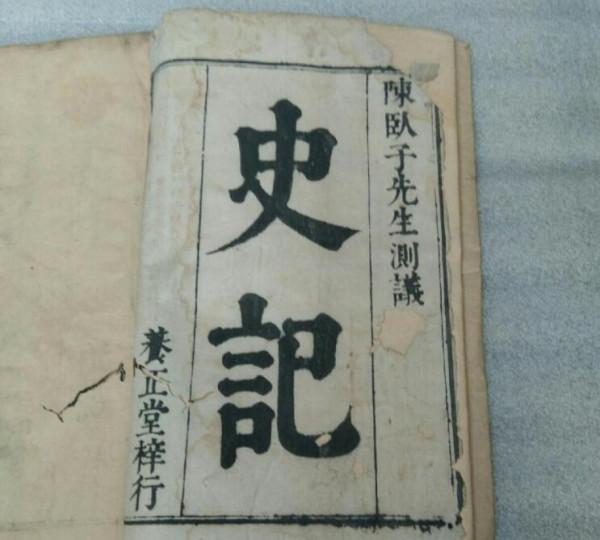 陳臥子先生測議
史記
養正堂梓行